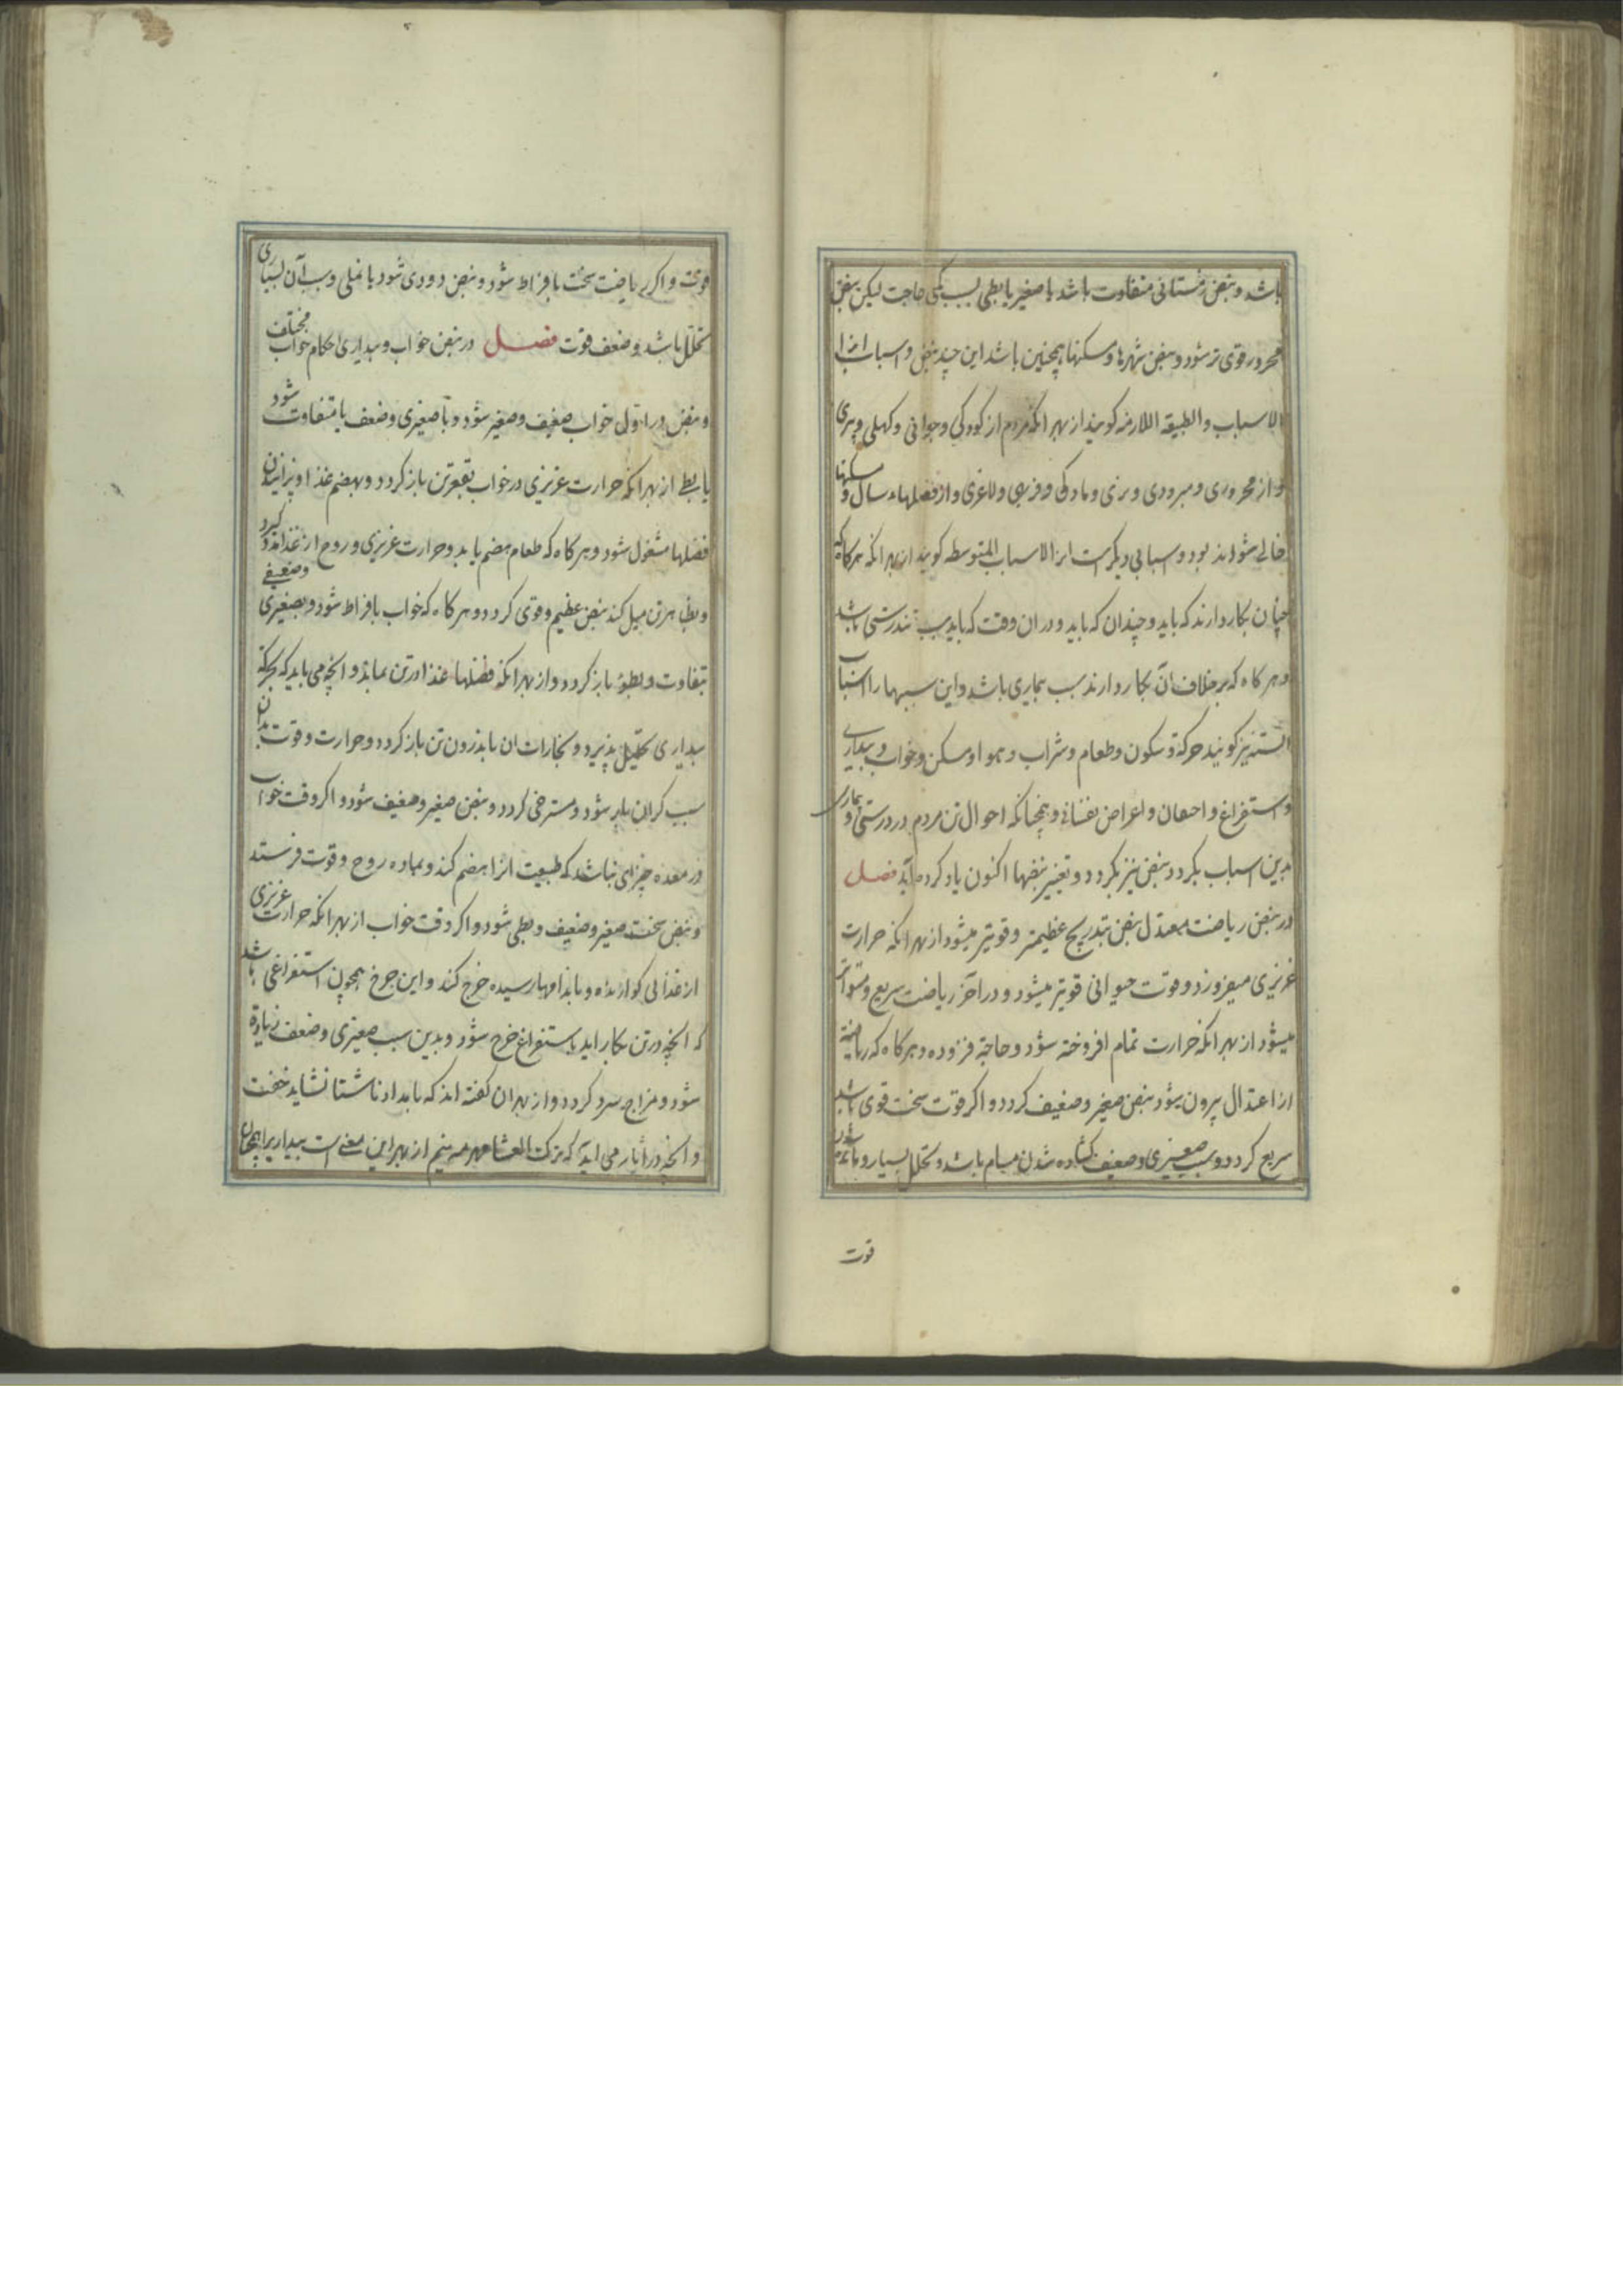 باشد و نبض زمستانی متفاوت باشد یا صغیر یا بطی بسبب کمی حاجت لیکن نبض
محرور قوی تر شود و نبض شهرها و مسکنها همچنین باشد این چند نبض و اسباب انرا
الاسباب والطبیقه اللازمه کویند از بهر انکه مردم از کودکی و جوانی و کهلی و پیری
و از محروری و مبرودی و نری و مادکی و فربهی و لاغری و از فصلهاء سال و مسکنها
خالی نشواند بود و اسبابی دیکرست انرا الاسباب المتوسطه کویند از بهر انکه هرکاه که
چنان بکار دارند که باید و چندان که باید و در ان وقت که باید سبب تندرستی باشد
و هر کاه که بر خلاف آن بکار دارند سبب بیماری باشد و این سببها را اسباب
الستّه نیز کویند حرکة و سکون و طعام و شراب و هوا و مسکن و خواب و بیداری
و استفراغ و احتقان و اعراض نفسانی و همچنانکه احوال تن مردم در درستی و بیماری
بدین اسباب بکردد نبض نیز بکردد و تغییر نبضها اکنون یاد کرده آید فصل
در نبض ریاضت معتدل نبض بتدریج عظیمتر و قویتر میشود از بهر انکه حرارت
غریزی میفروزد و قوت حیوانی قویتر میشود و در آخر ریاضت سریع و متواتر
میشود از بهر انکه حرارت تمام افروخته شود و حاجة فزوده و هرکاه که ریاضت
از اعتدال بیرون شود نبض صغیر و ضعیف کردد و اکر قوت سخت قوی باشد
سریع کردد و سبب صغیری و ضعیف کشاده شدن مسام باشد و تحلل بسیار و مانده شدن
قوت
قوت و اکر ریاضت سخت بافراط شود و نبض دودی شود یا نملی و سبب آن بسیاری
تحلل باشد و ضعف قوت فصل در نبض خواب و بیداری احکام خواب مختلف
و نبض در اول خواب ضعیف و صغیر شود و با صغیری و ضعف یا متفاوت شود
یا بطی از بهر انکه حرارت غریزی در خواب بقعر تن باز کردد و بهضم غذا و پزانیدن
فضلها مشغول شود و هر کاه که طعام هضم یابد و حرارت غریزی و روح از غذا مدد کیرد
و بظاهر تن میل کند نبض عظیم و قوی کردد و هر کاه که خواب بافراط شود و بصغیری و ضعیفی
بتفاوت و بطؤ باز کردد و از بهر انکه فضلهاء غذا در تن بماند و انچه می باید که بحرکة
بیداری تحلیل پذیرد و بخارات ان باندرون تن باز کردد و حرارت و قوت بدان
سبب کران بار شود و مسترخی کردد و نبض صغیر و ضعیف شود و اکر وقت خواب
در معده چیزی نباشد که طبیعت انرا هضم کند و بماده روح و قوت فرستد
و نبض سخت صغیر و ضعیف و بطی شود و اکر وقت خواب از بهر انکه حرارت غریزی
از غذائی کوارنده و باندامها رسیده خرج کند و این خرج همچون استفراغی باشد
که انچه در تن بکار اید باستفراغ خرج شود و بدین سبب صغیری و ضعف زیادة
شود و مزاج سرد کردد و از بهر ان کفته اند که بامداد ناشتا نشاید خفت
و انچه در آثار می آید که ترک العشا مهرمه نیم از بهر این معنی است بیداری